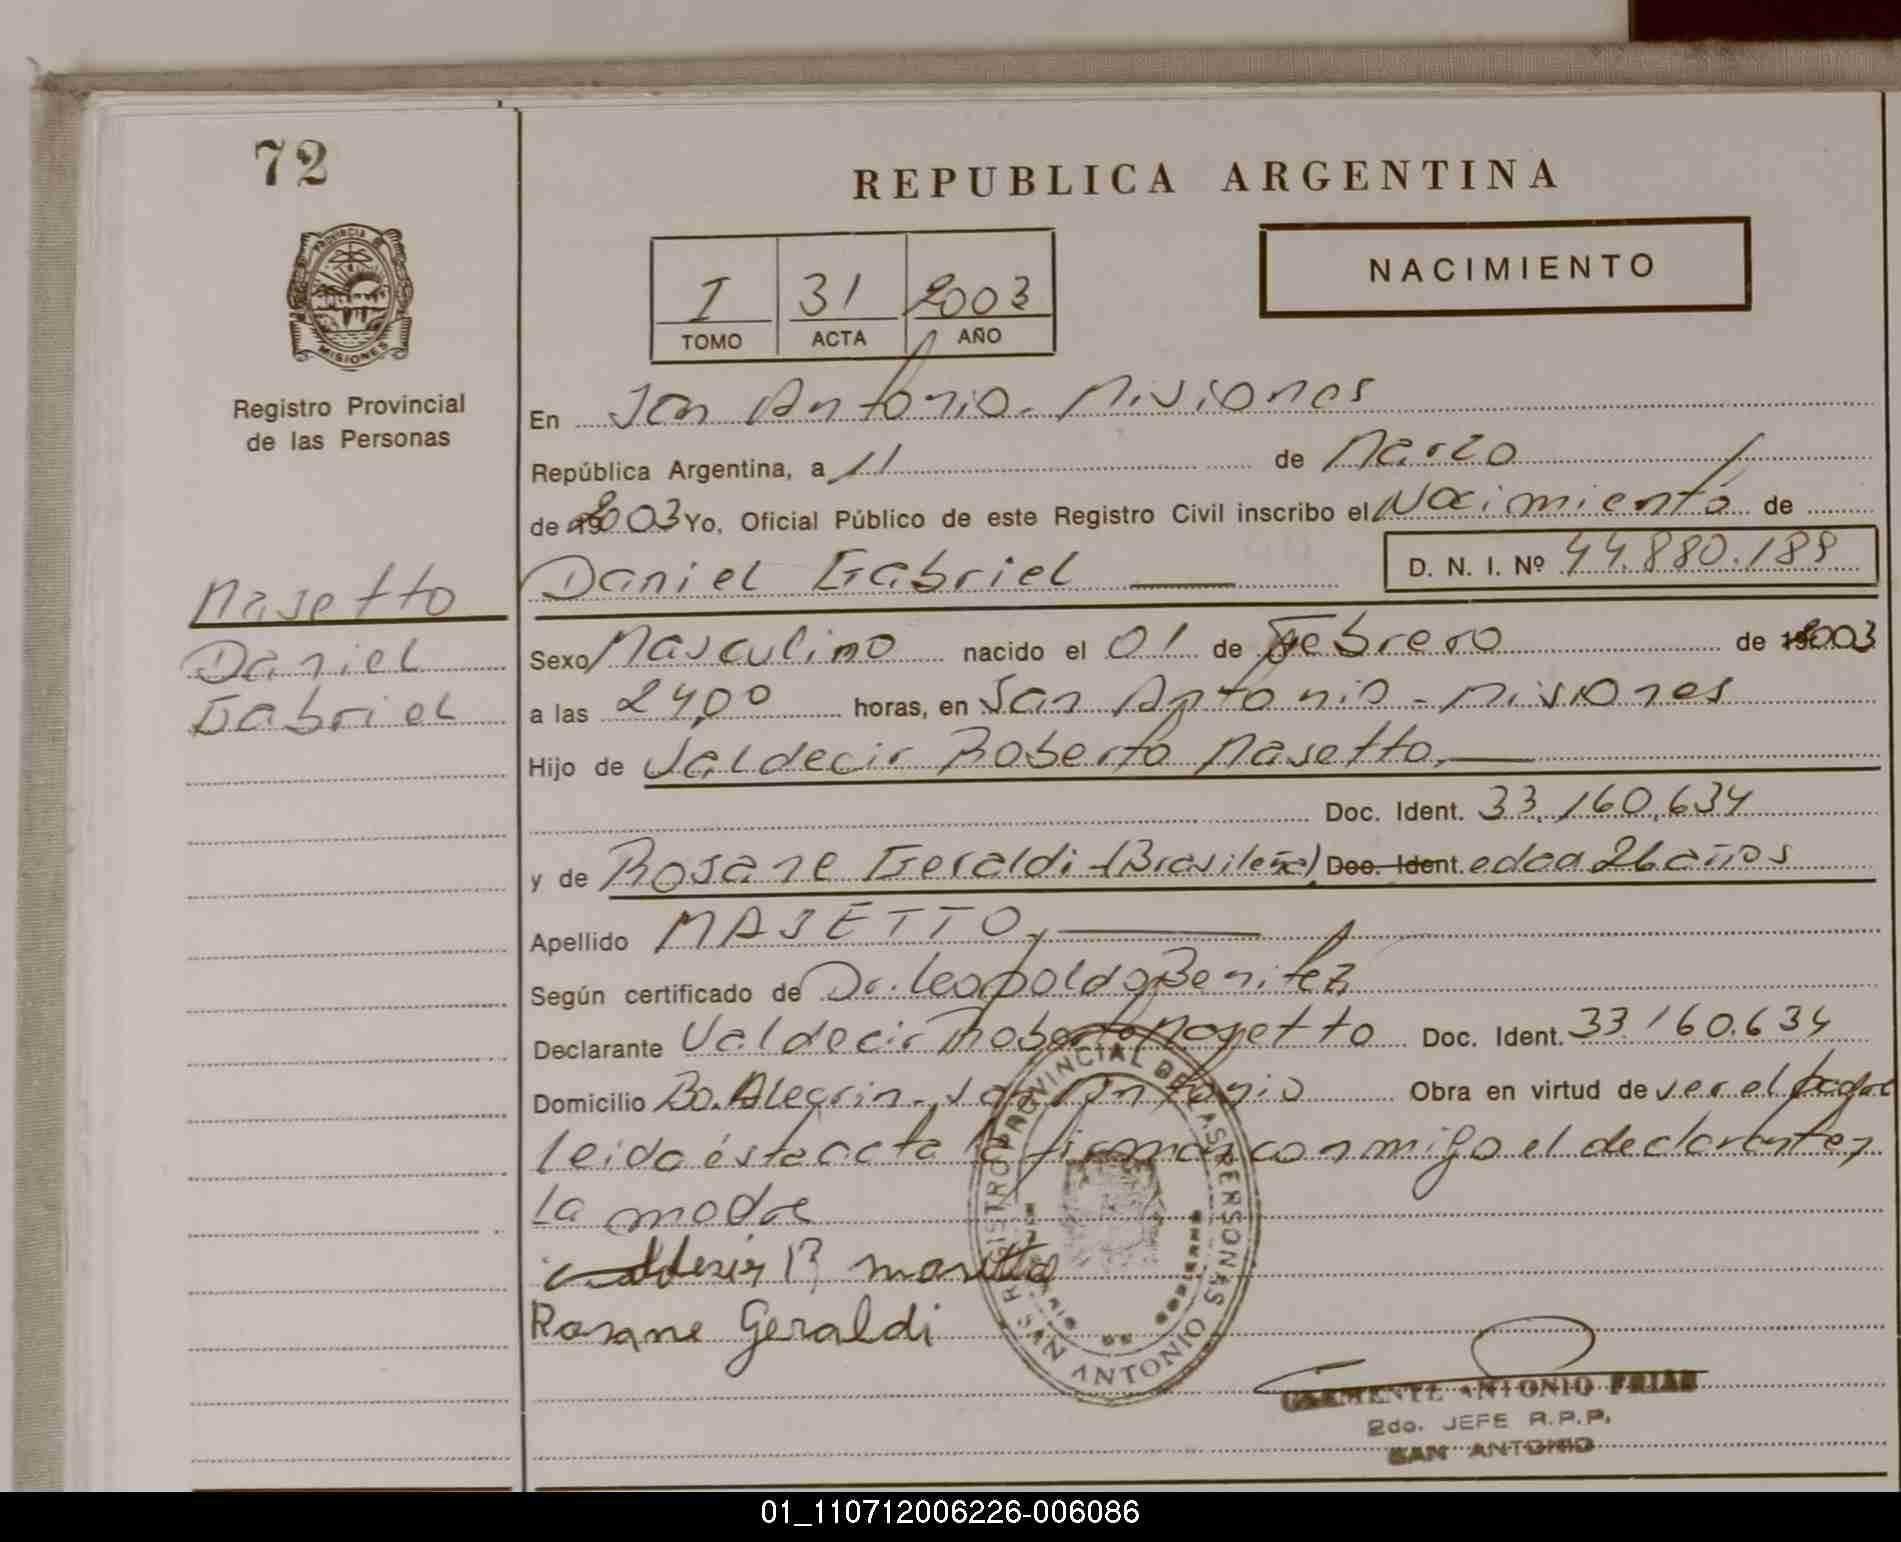 72
REPUBLICA ARGENTINA
PROVINCIA DE
MISIONES
NACIMIENTO
I 31 2003
TOMO ACTA AÑO
Registro Provincial
de las Personas
En San Antonio - Misiones
República Argentina, a 11 de Marzo
de 2003 Yo, Oficial Público de este Registro Civil inscribo el Nacimiento de
Masetto
Daniel
Gabriel
Daniel Gabriel D. N. I. Nº 44.880.189
Sexo Masculino nacido el 01 de Febrero de 2003
a las 24,00 horas, en San Antonio - Misiones
Hijo de Valdecir Roberto Masetto,
Doc. Ident. 33.160.634
y de Rosane Geraldi - (Brasileña) Doc. Ident. edad 26 años
Apellido MASETTO,
Según certificado de Dr. Leopoldo Benitez
Declarante Valdecir Roberto Masetto Doc. Ident. 33.160.634
Domicilio Bo. Alegrin - San Antonio Obra en virtud de ser el padre
leida ésta acta la firman conmigo el declarante y
la madre
R masetto
Rosane Geraldi
REGISTRO PROVINCIAL DE LAS PERSONAS
SAN ANTONIO
CLEMENTE ANTONIO FRIAS
2do. JEFE R.P.P.
SAN ANTONIO
01_110712006226-006086